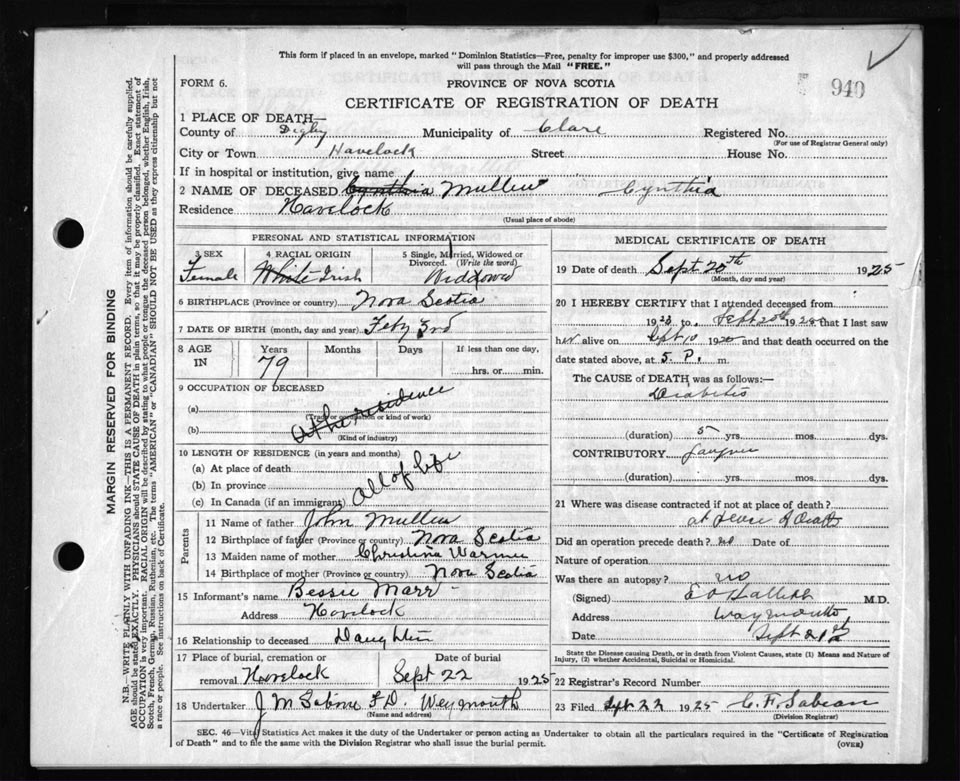 This form if placed in an envelope, marked "Dominion Statistics—Free, penalty for improper use $300," and properly addressed
will pass through the Mail "FREE."
940
FORM 6.
PROVINCE OF NOVA SCOTIA
CERTIFICATE OF REGISTRATION OF DEATH
1 PLACE OF DEATH—
County of Digby Municipality of Clare Registered No.
(For use of Registrar General only)
City or Town Havelock Street House No.
If in hospital or institution, give name
2 NAME OF DECEASED Cynthia Mullen Cynthia
Residence Havelock
(Usual place of abode)
PERSONAL AND STATISTICAL INFORMATION
3 SEX 4 RACIAL ORIGIN 5 Single, Married, Widowed or
Divorced. (Write the word)
Female White Irish Widdowed
6 BIRTHPLACE (Province or country) Nova Scotia
7 DATE OF BIRTH (month, day and year) Feby 3rd
8 AGE IN Years Months Days If less than one day,
79 hrs. or min.
9 OCCUPATION OF DECEASED
(a)
(Trade or occupation or kind of work)
(b) At the residence
(Kind of industry)
10 LENGTH OF RESIDENCE (in years and months)
(a) At place of death
(b) In province
(c) In Canada (if an immigrant) all of life
Parents
11 Name of father John Mullen
12 Birthplace of father (Province or country) Nova Scotia
13 Maiden name of mother Christina Warner
14 Birthplace of mother (Province or country) Nova Scotia
15 Informant's name Bessie Marr
Address Havelock
16 Relationship to deceased Daughter
17 Place of burial, cremation or Date of burial
removal Havelock Sept 22 1925
18 Undertaker J M Sabine F.D. Weymouth
(Name and address)
MEDICAL CERTIFICATE OF DEATH
19 Date of death Sept 20th 1925
(Month, day and year)
20 I HEREBY CERTIFY that I attended deceased from
1923 to Sept 20th 192 that I last saw
her alive on Sept 10 192 and that death occurred on the
date stated above, at 5. P. m.
The CAUSE OF DEATH was as follows:—
Diabetis
(duration) 5 yrs. mos. dys.
CONTRIBUTORY
(duration) yrs. mos. dys.
21 Where was disease contracted if not at place of death?
at place of death
Did an operation precede death? no Date of
Nature of operation
Was there an autopsy? no
(Signed) M.D.
Address Weymouth
Date Sept 21st
State the Disease causing Death, or in death from Violent Causes, state (1) Means and Nature of
Injury, (2) whether Accidental, Suicidal or Homicidal.
22 Registrar's Record Number
23 Filed Sept 22 1925 C. F. Sabean
(Division Registrar)
SEC. 46—Vital Statistics Act makes it the duty of the Undertaker or person acting as Undertaker to obtain all the particulars required in the "Certificate of Registration
of Death" and to file the same with the Division Registrar who shall issue the burial permit.
(OVER)
MARGIN RESERVED FOR BINDING
N.B.—WRITE PLAINLY WITH UNFADING INK—THIS IS A PERMANENT RECORD. Every item of information should be carefully supplied.
AGE should be stated EXACTLY. PHYSICIANS should STATE CAUSE OF DEATH in plain terms, so that it may be properly classified. Exact statement of
OCCUPATION is very important. RACIAL ORIGIN will be described by stating to what people or tongue the deceased person belonged, whether English, Irish,
Scotch, French, German, Russian, Ruthenian, etc. The terms "AMERICAN" or "CANADIAN" SHOULD NOT BE USED as they express citizenship but not
a race or people. See instructions on back of Certificate.